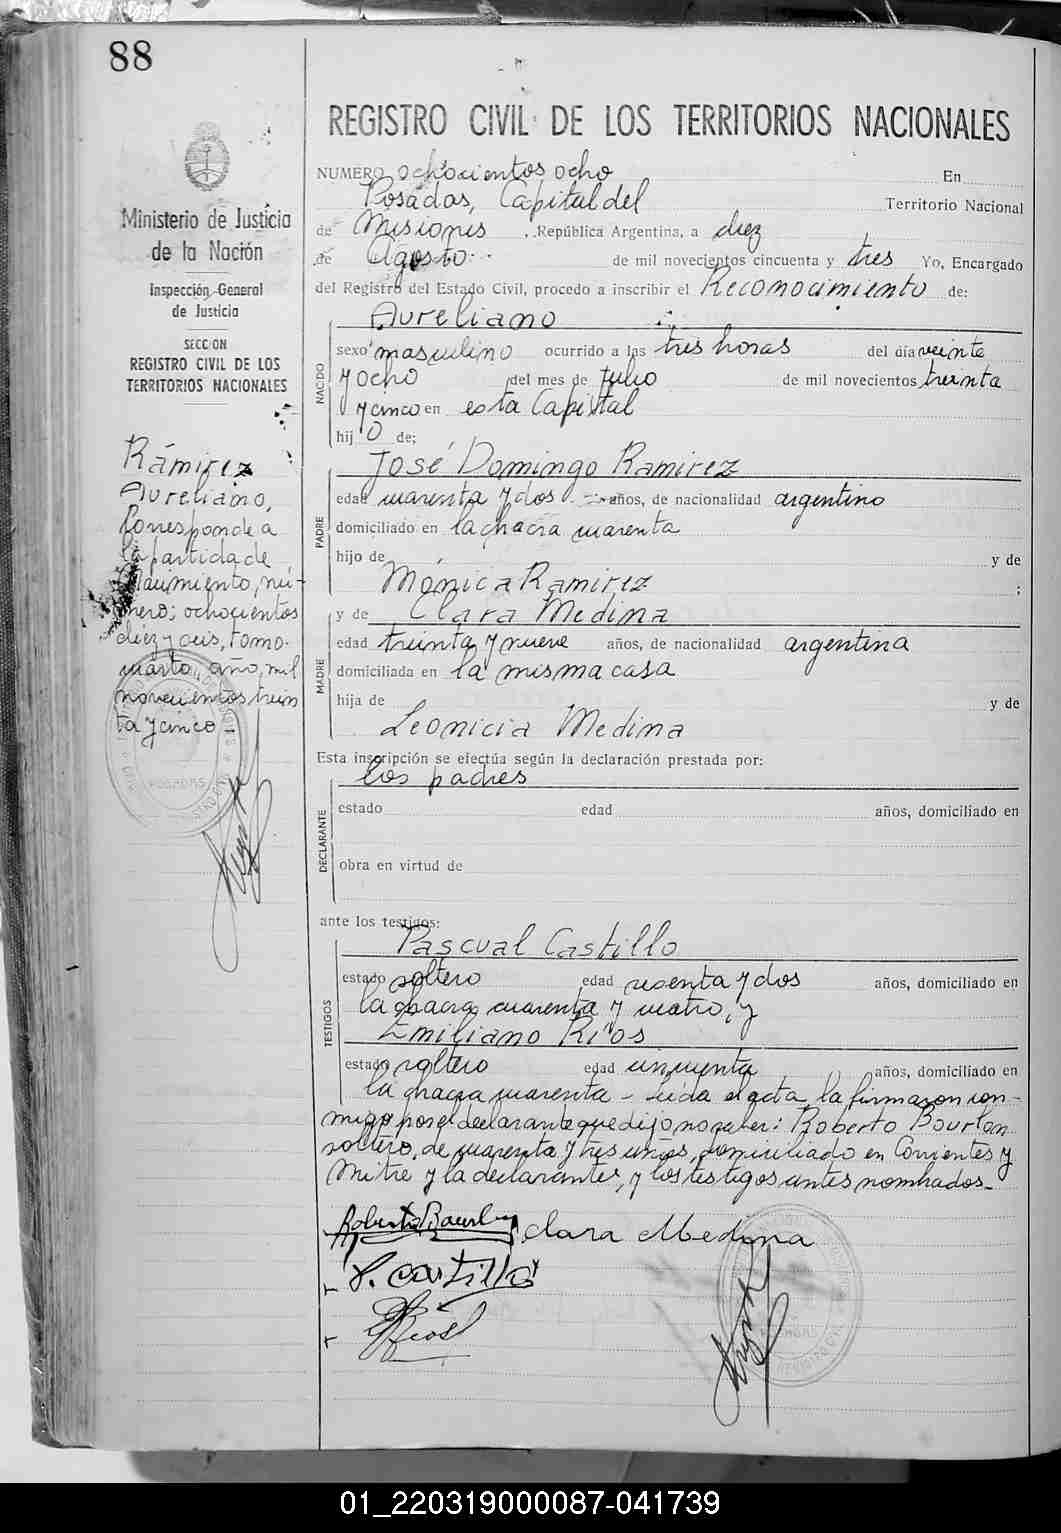 88
REGISTRO CIVIL DE LOS TERRITORIOS NACIONALES
NUMERO ochocientos ocho En
Posadas, Capital del Territorio Nacional
de Misiones, República Argentina, a diez
de Agosto de mil novecientos cincuenta y tres Yo, Encargado
del Registro del Estado Civil, procedo a inscribir el Reconocimiento de:
Aureliano
NACIDO
sexo masculino ocurrido a las tres horas del día veinte
y ocho del mes de Julio de mil novecientos treinta
y cinco en esta Capital
hijo de;
José Domingo Ramirez
PADRE
edad cuarenta y dos años, de nacionalidad argentino
domiciliado en la chacra cuarenta
hijo de y de
Mónica Ramirez ;
y de Clara Medina
MADRE
edad treinta y nueve años, de nacionalidad argentina
domiciliada en la misma casa
hija de y de
Leonicia Medina
Esta inscripción se efectúa según la declaración prestada por:
los padres
DECLARANTE
estado edad años, domiciliado en
obra en virtud de
ante los testigos:
Pascual Castillo
TESTIGOS
estado soltero edad sesenta y dos años, domiciliado en
la chacra cuarenta y cuatro, y
Emiliano Ríos
estado soltero edad cincuenta años, domiciliado en
la chacra cuarenta - Leida el acta, la firmaron con-
migo por el declarante que dijo no saber: Roberto Bourlan
soltero, de cuarenta y tres años, domiciliado en Corrientes y
Mitre y la declarante, y los testigos antes nombrados.
Clara Medina
P. Castillo
Rios
Ministerio de Justicia
de la Nación
Inspección General
de Justicia
SECCION
REGISTRO CIVIL DE LOS
TERRITORIOS NACIONALES
Ramirez
Aureliano,
Corresponde a
la partida de
nacimiento, nú-
mero; ochocientos
diez y seis, tomo
cuarto, año, mil
novecientos trein
ta y cinco
POSADAS
01_220319000087-041739